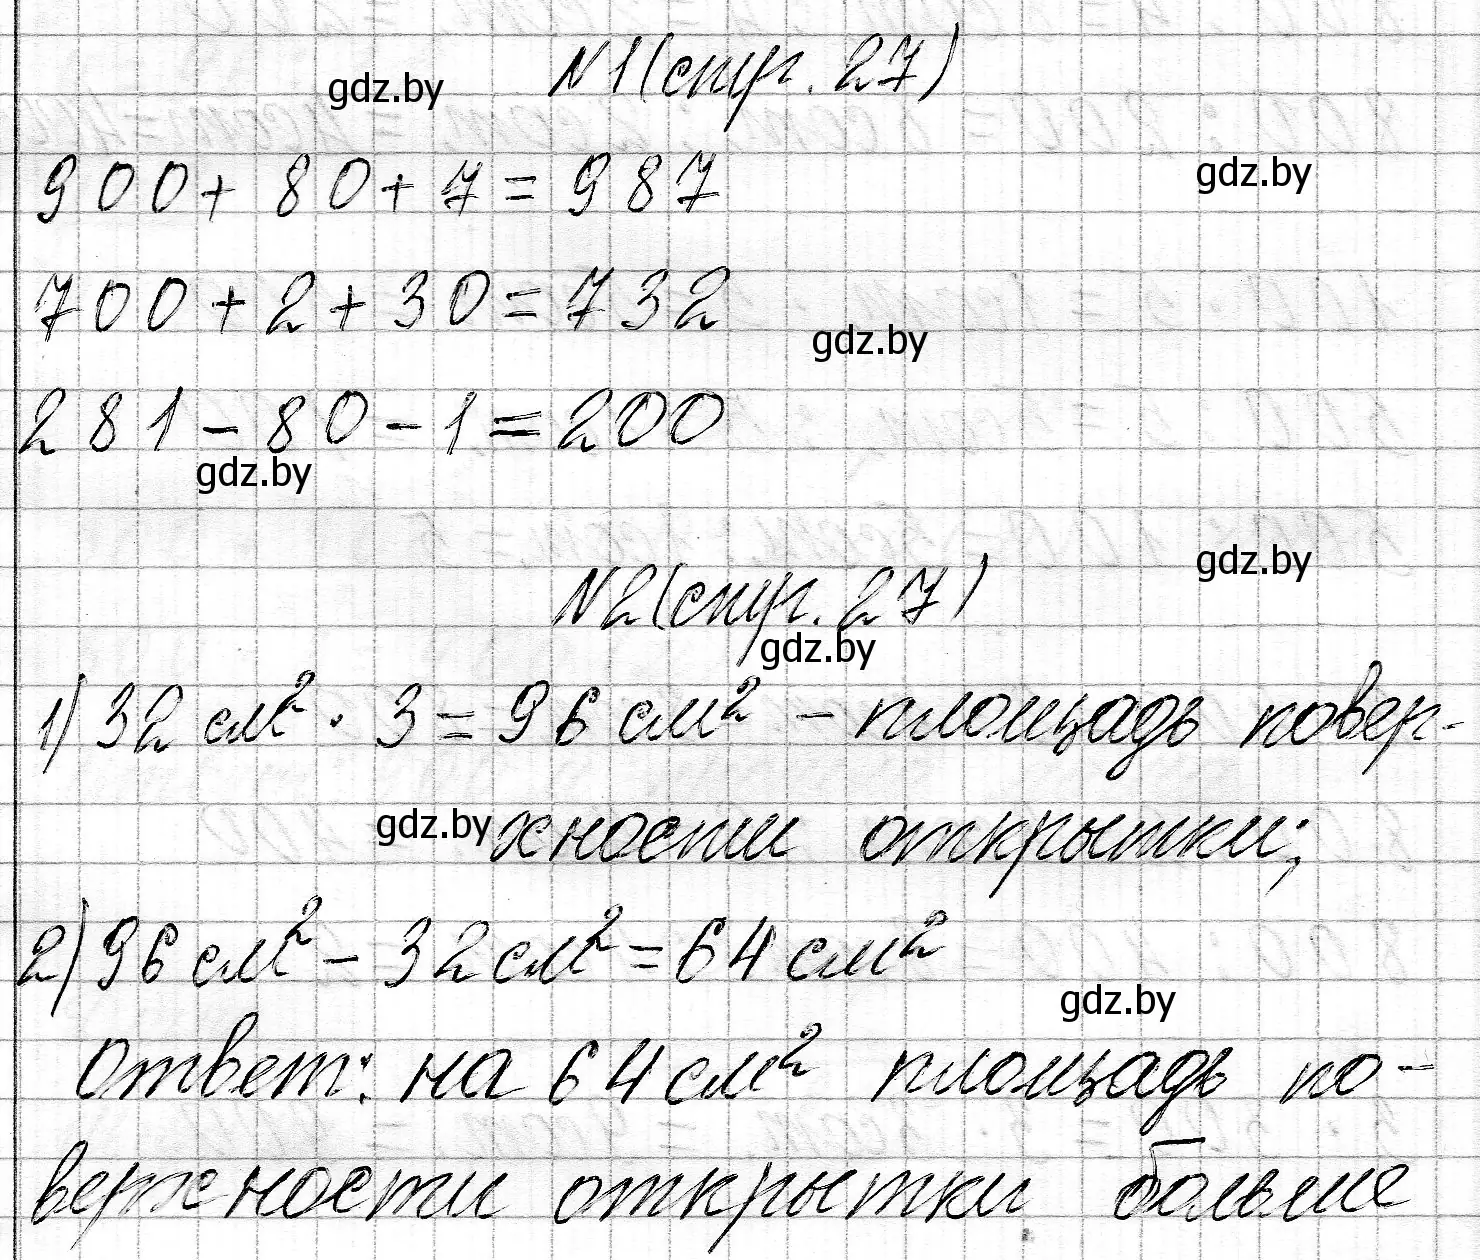 N1(стр. 27)
gdz.by
900 + 80 + 7 = 987
gdz.by
700 + 2 + 30 = 732
gdz.by
281 - 80 - 1 = 200
gdz.by
gdz.by
N2(стр. 27)
gdz.by
1) 32 см² · 3 = 96 см² - площадь повер-
gdz.by
хности открытки;
2) 96 см² - 32 см² = 64 см²
gdz.by
Ответ: на 64 см² площадь по-
верхности открытки больше